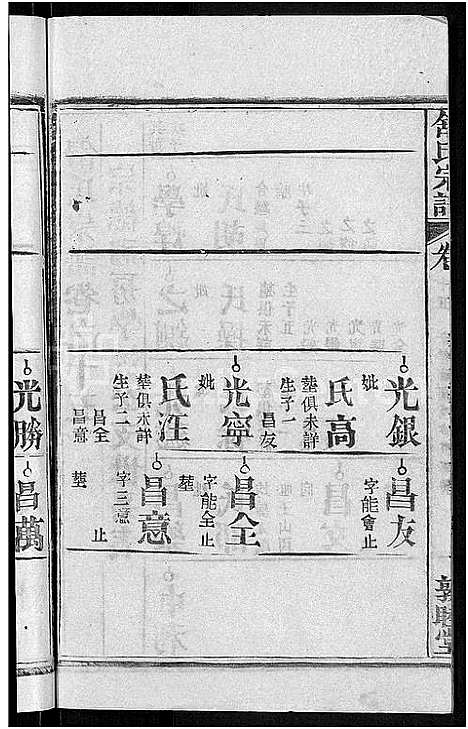 舒氏宗譜
卷
敦睦堂
光銀
妣
高氏
葬俱未詳
生子一
昌友
光寧
妣
汪氏
葬俱未詳
生子二
昌全
昌意
昌友
字能會止
昌全
字能全止
葬
昌意
字三意
葬
止
光勝
昌萬